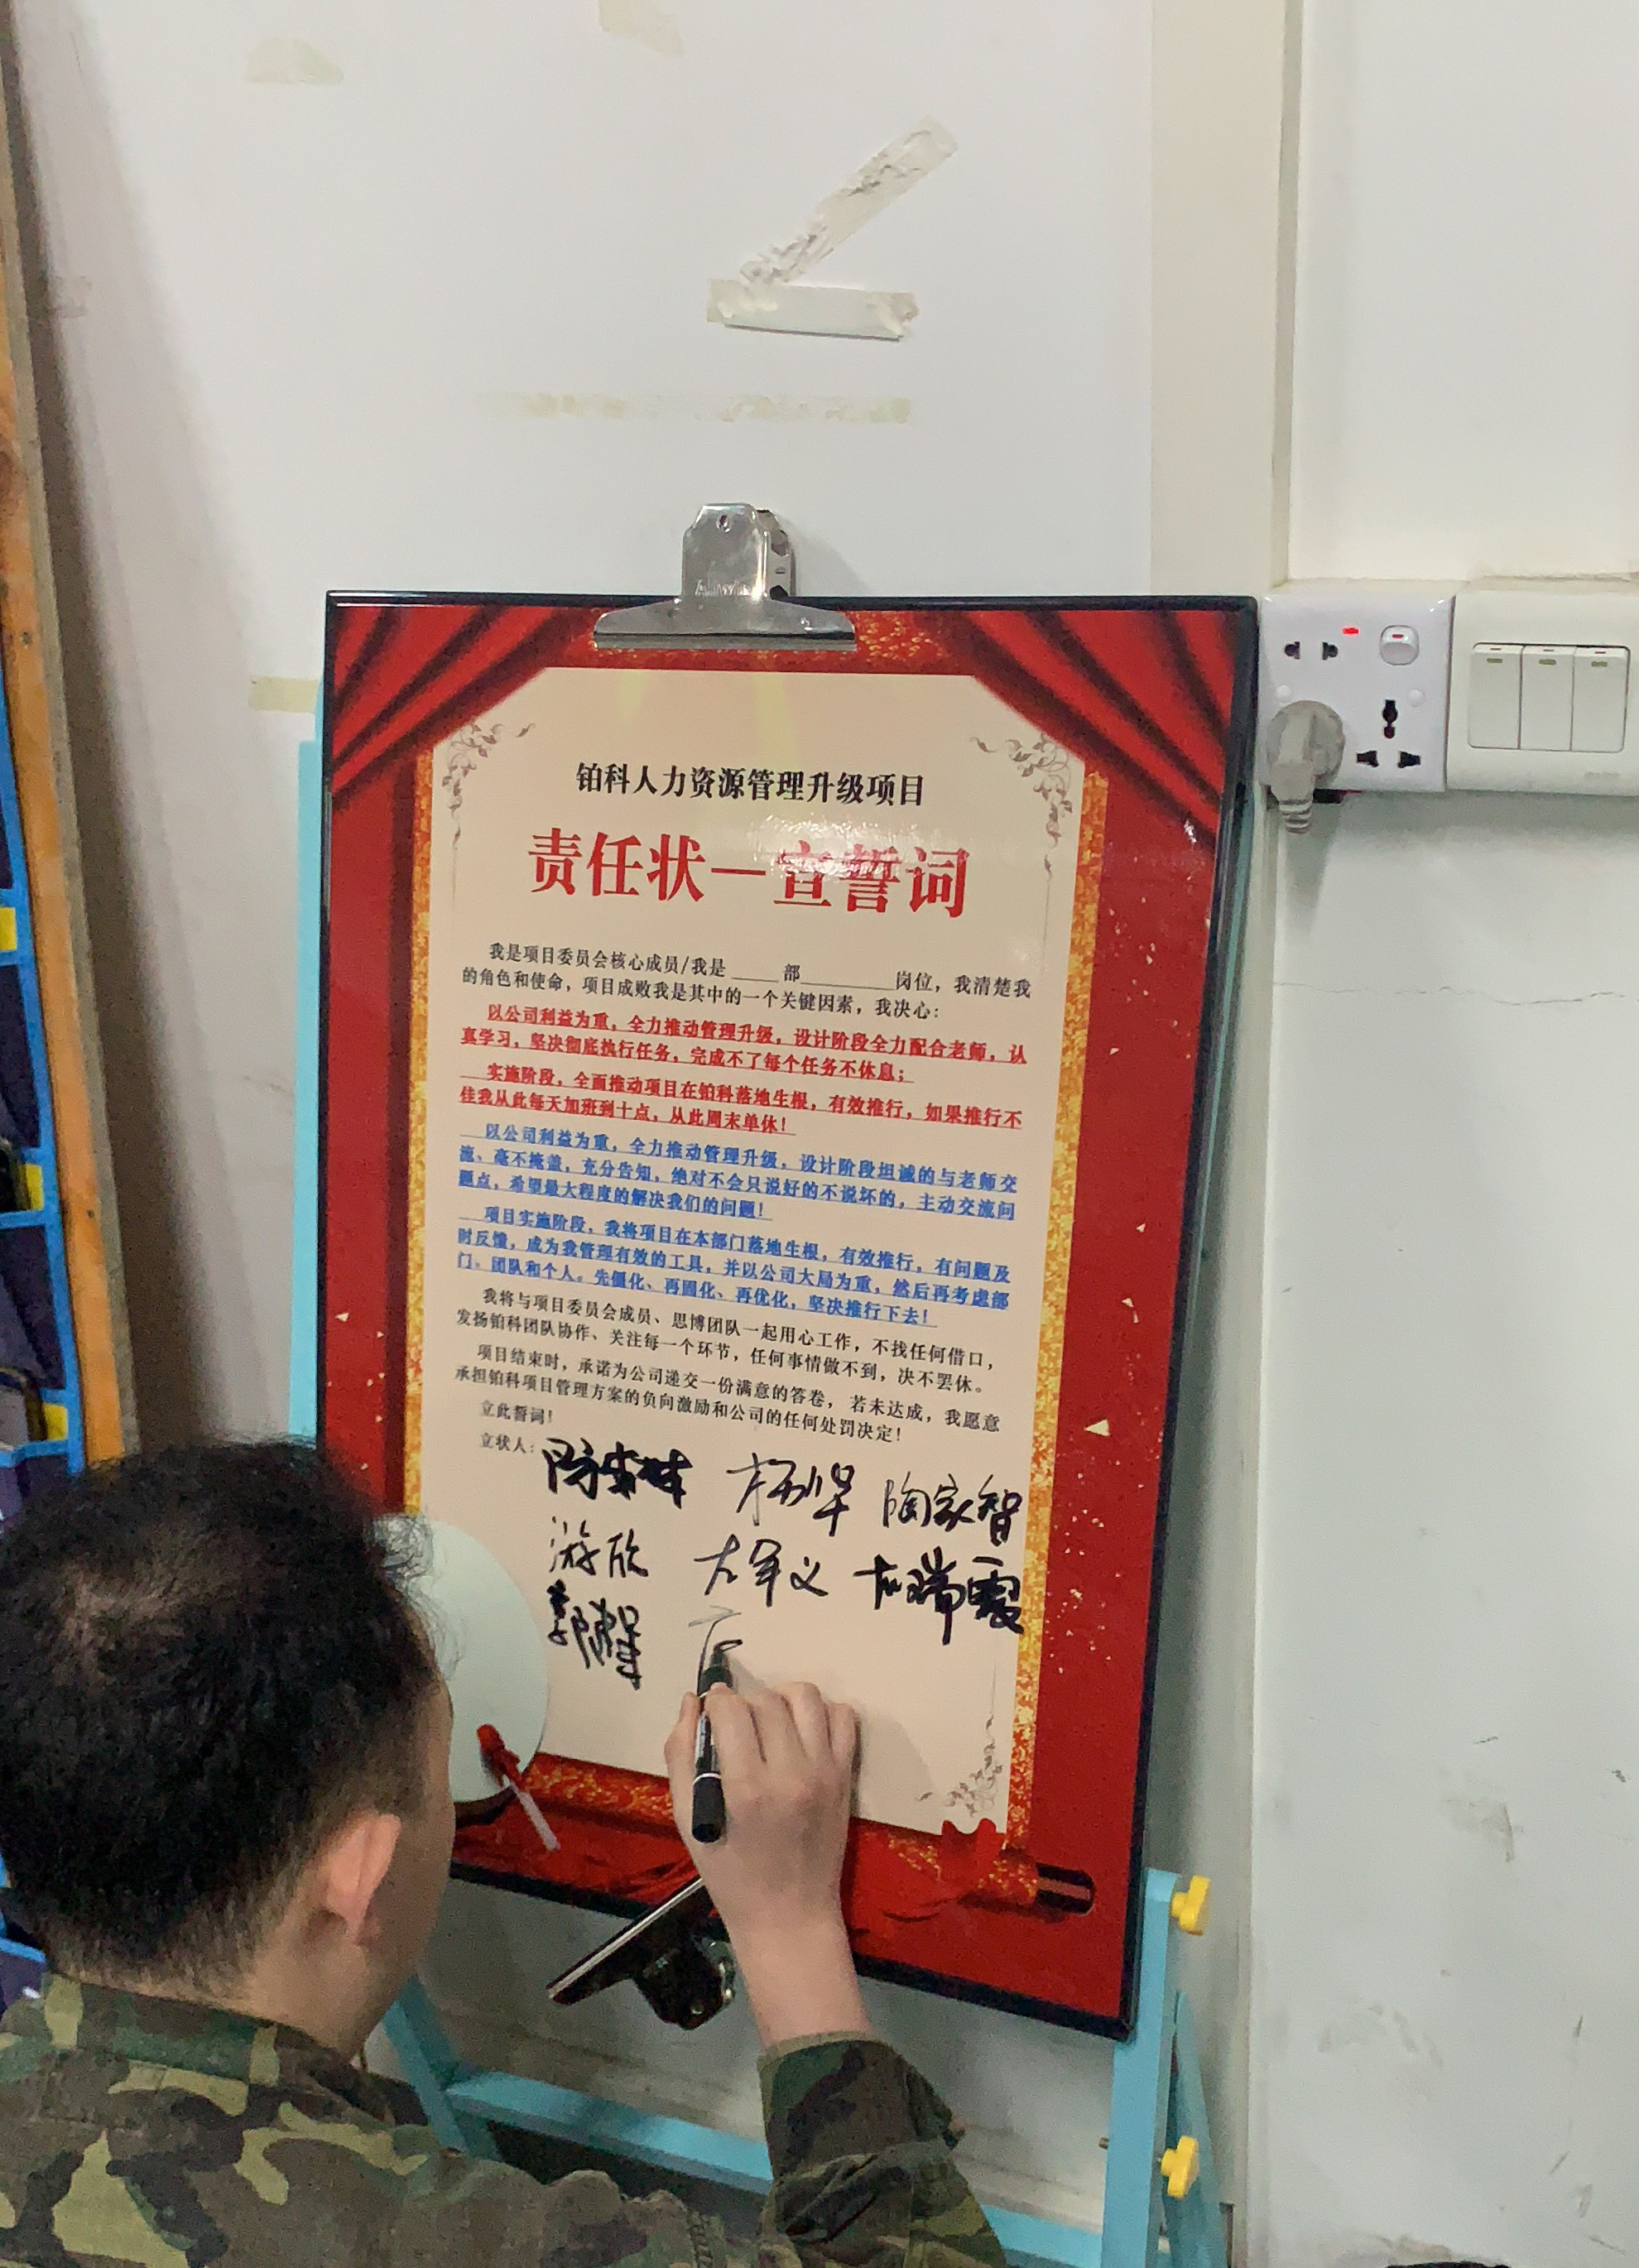 铂科人力资源管理升级项目
责任状—宣誓词
我是项目委员会核心成员/我是_____部_________岗位，我清楚我
的角色和使命，项目成败我是其中的一个关键因素，我决心：
以公司利益为重，全力推动管理升级，设计阶段全力配合老师，认
真学习，坚决彻底执行任务，完成不了每个任务不休息；
实施阶段，全面推动项目在铂科落地生根，有效推行，如果推行不
佳我从此每天加班到十点，从此周末单休！
以公司利益为重，全力推动管理升级，设计阶段坦诚的与老师交
流、毫不掩盖，充分告知，绝对不会只说好的不说坏的，主动交流问
题点，希望最大程度的解决我们的问题！
项目实施阶段，我将项目在本部门落地生根，有效推行，有问题及
时反馈，成为我管理有效的工具，并以公司大局为重，然后再考虑部
门、团队和个人。先僵化、再固化、再优化，坚决推行下去！
我将与项目委员会成员、思博团队一起用心工作，不找任何借口，
发扬铂科团队协作、关注每一个环节，任何事情做不到，决不罢休。
项目结束时，承诺为公司递交一份满意的答卷，若未达成，我愿意
承担铂科项目管理方案的负向激励和公司的任何处罚决定！
立此誓词！
立状人：
陶家智
游欣